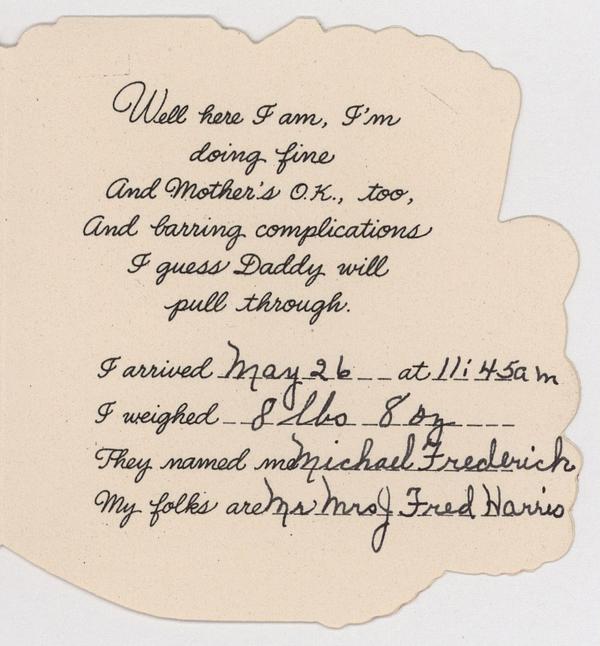 Well here I am, I'm
doing fine
And Mother's O.K., too,
And barring complications
I guess Daddy will
pull through.
I arrived May 26 at 11:45am
I weighed 8 lbs 8 oz
They named me Michael Frederick
My folks are Mr Mrs J Fred Harris